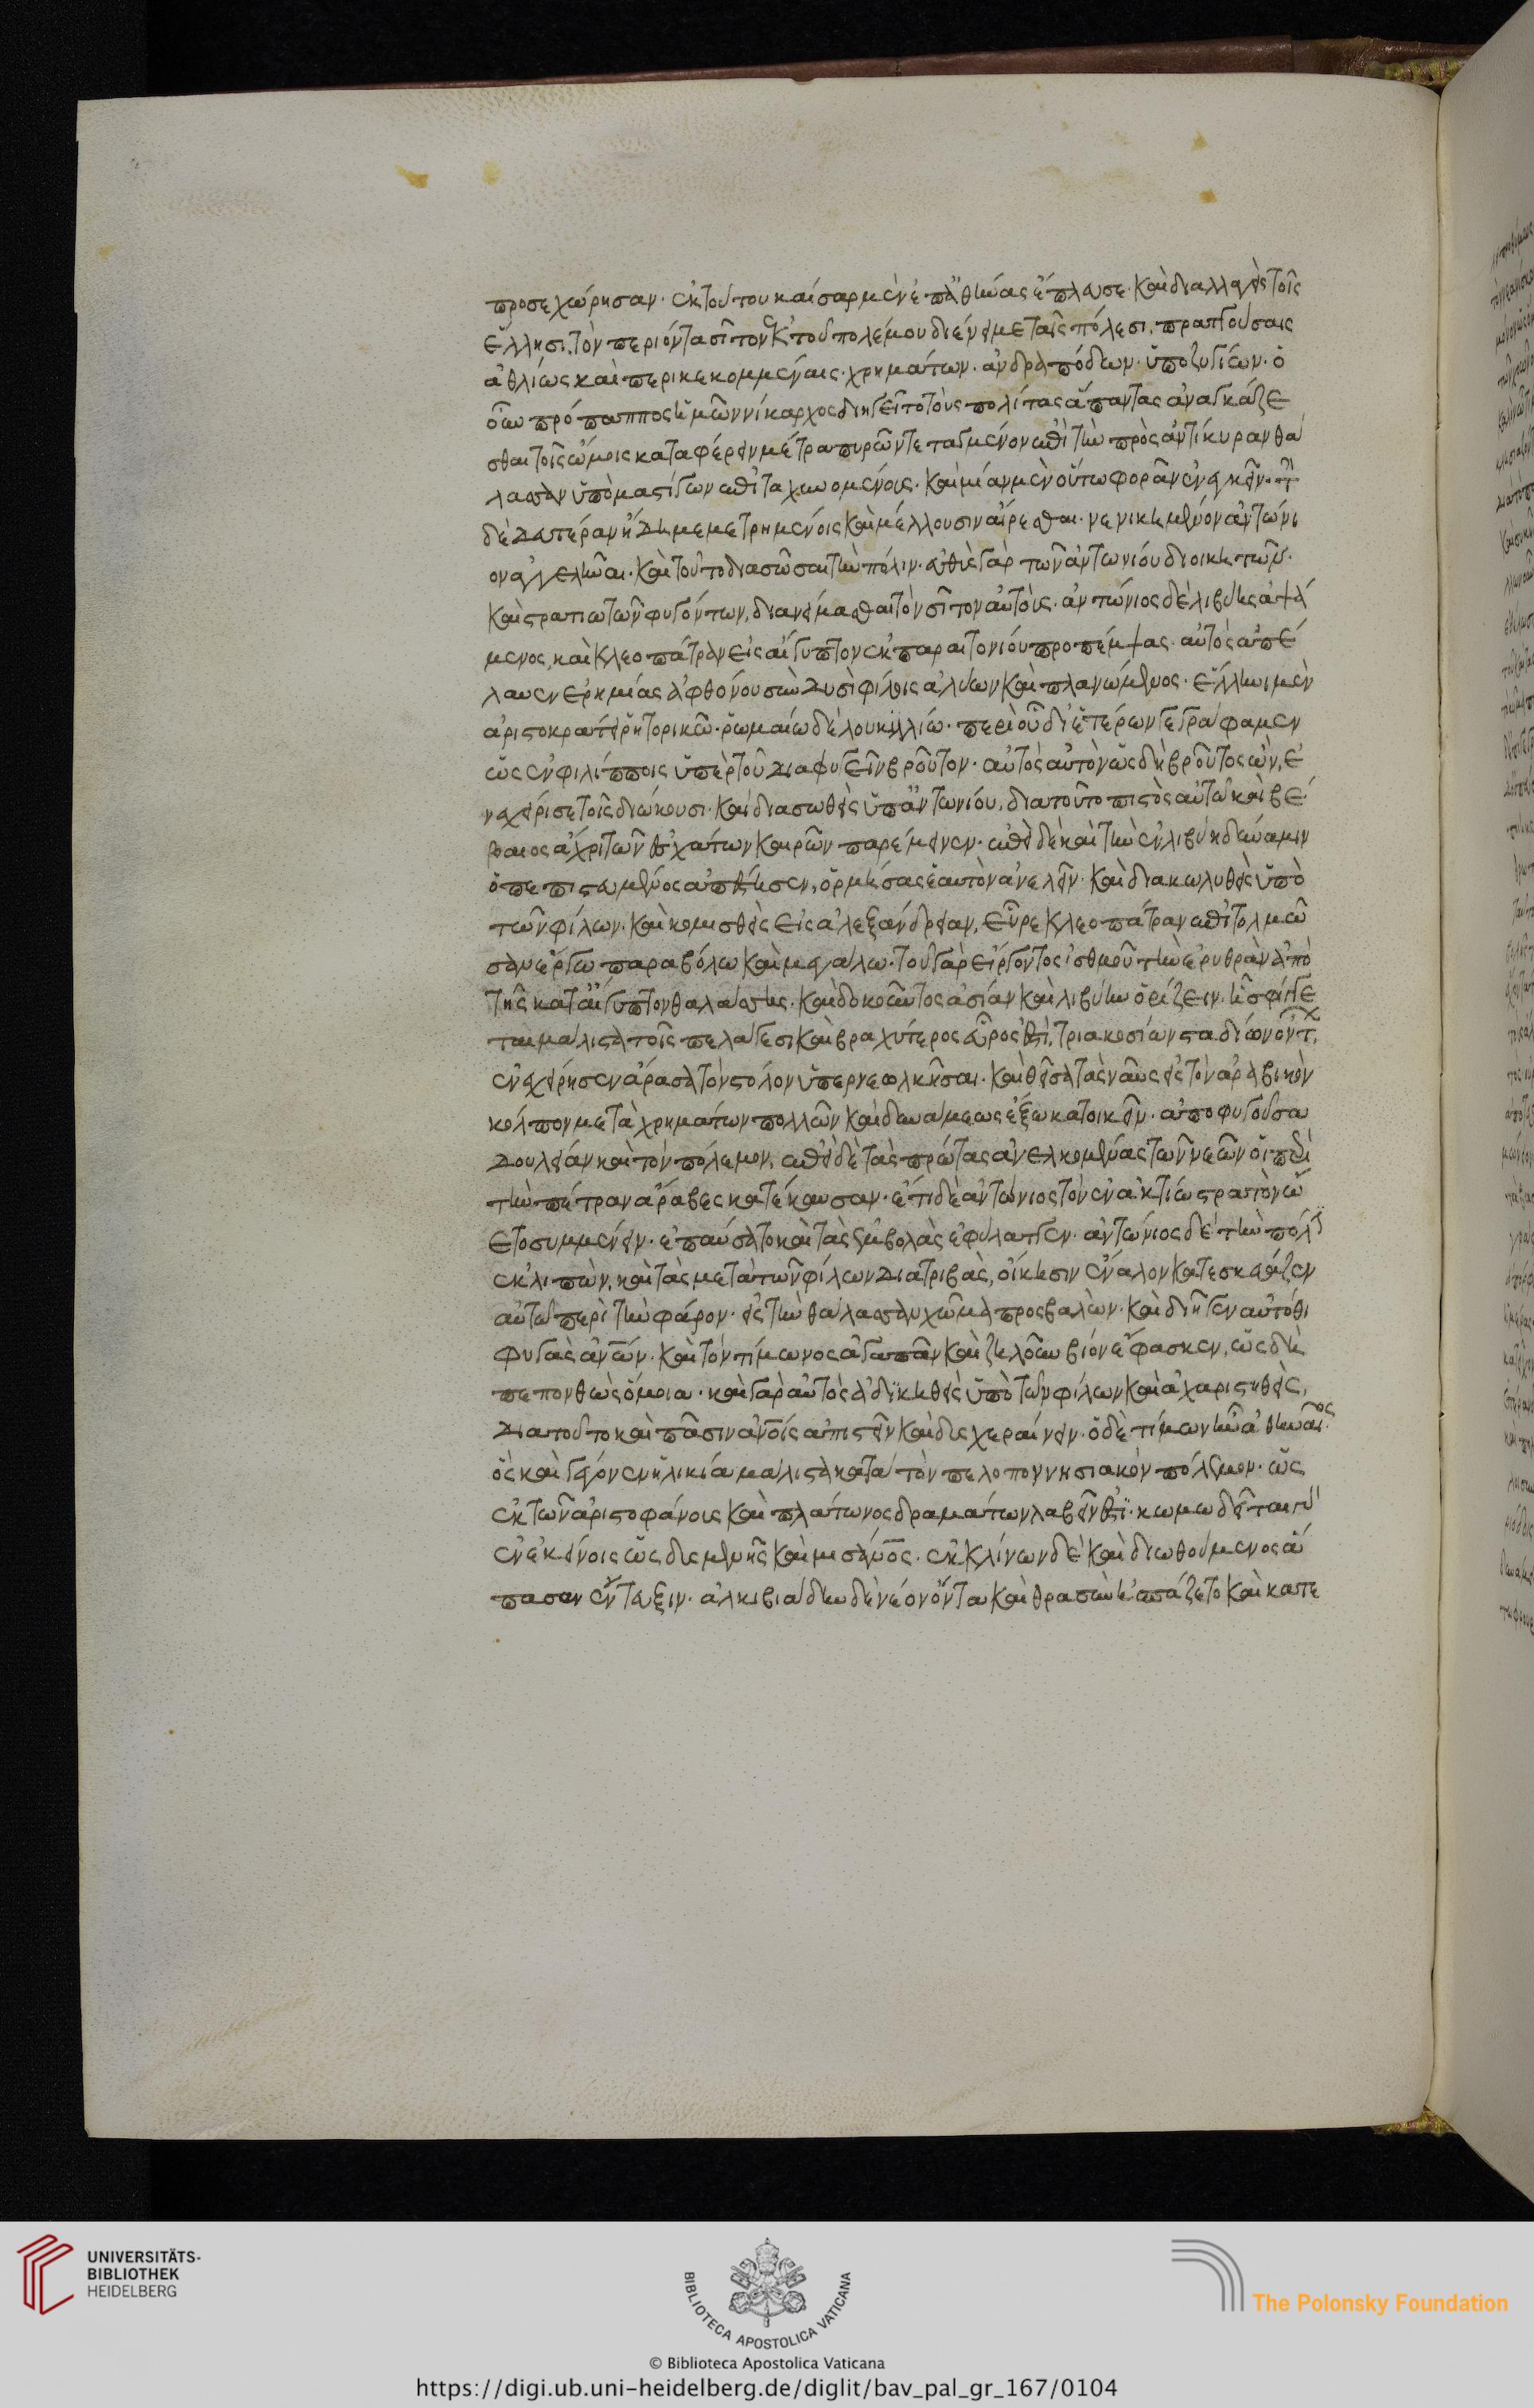 προσεχώρησαν· ἐκ τούτου καῖσαρ μὲν ἐπ' ἀθήνας ἔπλευσε· καὶ διαλλαγεὶς τοῖς
ἕλλησι, τὸν περιόντα σῖτον ἐκ τοῦ πολέμου διένειμε ταῖς πόλεσι, πραττούσαις
ἀθλίως καὶ περικεκομμέναις· χρημάτων· ἀνδραπόδων· ὑποζυγίων· ὁ
οὖν πρόπαππος ἡμῶν νίκαρχος διηγεῖτο τοὺς πολίτας ἅπαντας ἀναγκάζε
σθαι τοῖς ὤμοις καταφέρειν μέτρα πυρῶν τεταγμένον ἐπὶ τὴν πρὸς ἀντίκυραν θά
λασσαν ὑπὸ μαστίγων ἐπιταχυνομένους· καὶ μίαν μὲν οὕτω φορὰν ἐνεγκεῖν· τὴν
δὲ δευτέραν ἤδη μεμετρημένοις καὶ μέλλουσιν αἴρεσθαι· νενικημένον ἀντώνι
ον ἀγγελῆναι· καὶ τοῦτο διασῶσαι τὴν πόλιν· εὐθὺς γὰρ τῶν ἀντωνίου διοικητῶν·
καὶ στρατιωτῶν φυγόντων, διανείμασθαι τὸν σῖτον αὐτοὺς· ἀντώνιος δὲ λιβύης ἁψά
μενος, καὶ κλεοπάτραν εἰς αἴγυπτον ἐκ παραιτονίου προπέμψας· αὐτὸς ἀπέ
λαυεν ἐρημίας ἀφθόνου σὺν δυσὶ φίλοις ἀλύων καὶ πλανώμενος· ἕλληνι μὲν
ἀριστοκράτει ῥήτορι κῶ· ῥωμαίω δὲ λουκιλλίω· περὶ οὗ δι' ἑτέρων γεγράφαμεν
ὡς ἐν φιλίπποις ὑπὲρ τοῦ διαφυγεῖν βροῦτον· αὐτὸς αὑτὸν ὡς δὴ βροῦτος ὢν, ἐ
νεχείρισε τοῖς διώκουσι· καὶ διασωθεὶς ὑπ' ἀντωνίου, διὰ τοῦτο πιστὸς αὐτῶ καὶ βέ
βαιος ἄχρι τῶν ἐσχάτων καιρῶν παρέμεινεν· ἐπεὶ δὲ καὶ τὴν ἐν λιβύη δύναμιν
ὁ πεπιστευμένος ἀπέστησεν, ὁρμήσας ἑαυτὸν ἀνελεῖν· καὶ διακωλυθεὶς ὑπὸ
τῶν φίλων· καὶ κομισθεὶς εἰς ἀλεξάνδρειαν, εὗρε κλεοπάτραν ἐπιτολμῶ
σαν ἔργω παραβόλω καὶ μεγάλω· τοῦ γὰρ εἴργοντος ἰσθμοῦ τὴν ἐρυθρὰν ἀπὸ
τῆς κατ' αἴγυπτον θαλάσσης· καὶ δοκοῦντος ἀσίαν καὶ λιβύην ὁρίζειν· ἧ σφίγγε
ται μάλιστα τοῖς πελάγεσι καὶ βραχύτερος εὖρός ἐστι, τριακοσίων σταδίων ὄντων,
ἐνεχείρησεν ἄρασα τὸν στόλον ὑπερνεωλκῆσαι· καὶ θεῖσα τὰς ναῦς εἰς τὸν ἀραβικὸν
κόλπον μετὰ χρημάτων πολλῶν καὶ δυνάμεως ἔξω κατοικεῖν· ἀποφυγοῦσα
δουλείαν καὶ τὸν πόλεμον, ἐπεὶ δὲ τὰς πρώτας ἀνελκομένας τῶν νεῶν οἱ περὶ
τὴν πέτραν ἄραβες κατέκαυσαν· ἔτι δὲ ἀντώνιος τὸν ἐν ἀκτίω στρατὸν ὤ
ετο συμμένειν· ἐπαύσατο καὶ τὰς ἐμβολὰς ἐφύλαττεν· ἀντώνιος δὲ τὴν πόλιν
ἐκλιπὼν, καὶ τὰς μετὰ τῶν φίλων διατριβὰς, οἴκησιν ἔναλον κατεσκεύαζεν
αὑτῶ περὶ τὴν φάρον· εἰς τὴν θάλασσαν χῶμα προσβαλών· καὶ διῆγεν αὐτόθι
φυγὰς ἀνῶν· καὶ τὸν τίμωνος ἀγαπᾶν καὶ ζηλοῦν βίον ἔφασκεν, ὡς δὴ
πεπονθὼς ὅμοια· καὶ γὰρ αὐτὸς ἀδικηθεὶς ὑπὸ τῶν φίλων καὶ ἀχαριστηθεὶς,
διὰ τοῦτο καὶ πᾶσιν ἀνοῖς ἀπιστεῖν καὶ δυσχεραίνειν· ὁ δὲ τίμων ἦν ἀθηναῖος·
ὃς καὶ γέγονεν ἡλικία μάλιστα κατὰ τὸν πελοποννησιακὸν πόλεμον· ὡς
ἐκ τῶν ἀριστοφάνους καὶ πλάτωνος δραμάτων λαβεῖν ἐστι· κωμωδεῖται γὰρ
ἐν ἐκείνοις ὡς δυσμενὴς καὶ μισάνος· ἐκκλίνων δὲ καὶ διωθούμενος ἅ
πασαν ἔντευξιν· ἀλκιβιάδην δὲ νέον ὄντα καὶ θρασὺν ἠσπάζετο καὶ κατε
UNIVERSITÄTS-
BIBLIOTHEK
HEIDELBERG
BIBLIOTECA APOSTOLICA VATICANA
The Polonsky Foundation
© Biblioteca Apostolica Vaticana
https://digi.ub.uni-heidelberg.de/diglit/bav_pal_gr_167/0104